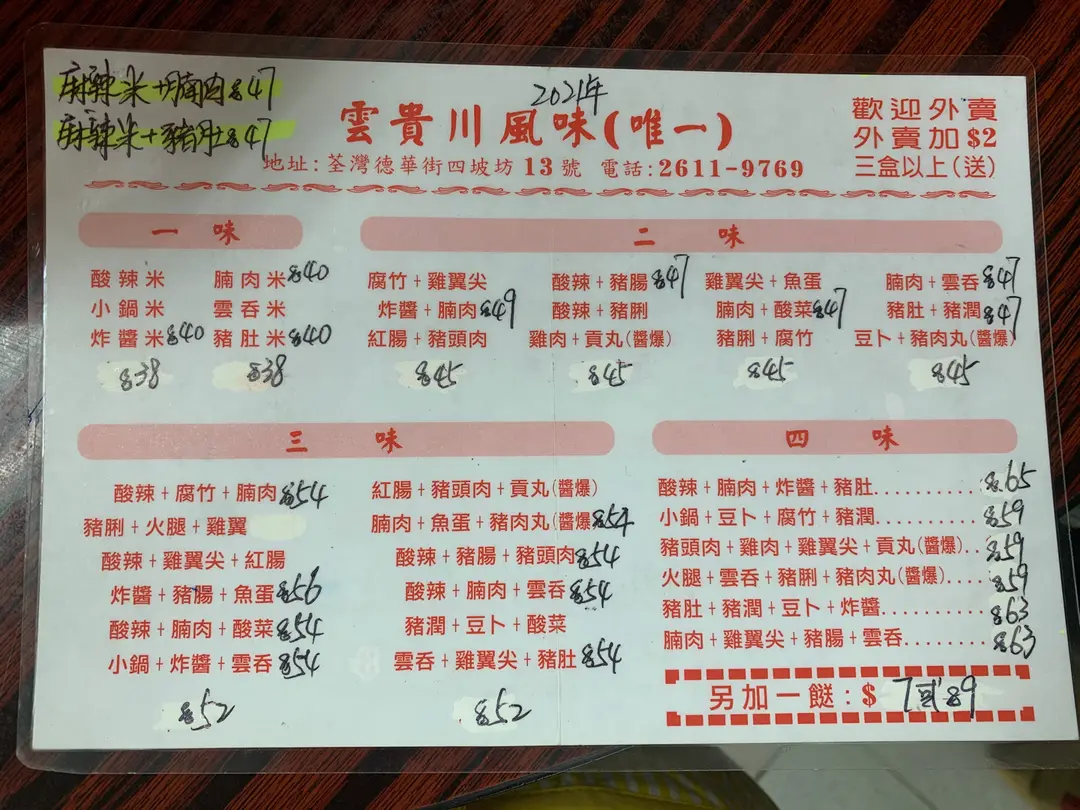 麻辣米+腩肉$47
麻辣米+豬肚$47
2021年
雲貴川風味(唯一)
地址:荃灣德華街四坡坊13號 電話:2611-9769
歡迎外賣
外賣加$2
三盒以上(送)
一味
酸辣米 腩肉米$40
小鍋米 雲吞米
炸醬米$40 豬肚米$40
$38 $38
二味
腐竹+雞翼尖 酸辣+豬腸$47 雞翼尖+魚蛋 腩肉+雲吞$47
炸醬+腩肉$49 酸辣+豬脷 腩肉+酸菜$47 豬肚+豬潤$47
紅腸+豬頭肉 雞肉+貢丸(醬爆) 豬脷+腐竹 豆卜+豬肉丸(醬爆)
$45 $45 $45 $45
三味
酸辣+腐竹+腩肉$54 紅腸+豬頭肉+貢丸(醬爆)
豬脷+火腿+雞翼 腩肉+魚蛋+豬肉丸(醬爆)$54
酸辣+雞翼尖+紅腸 酸辣+豬腸+豬頭肉$54
炸醬+豬腸+魚蛋$56 酸辣+腩肉+雲吞$54
酸辣+腩肉+酸菜$54 豬潤+豆卜+酸菜
小鍋+炸醬+雲吞$54 雲吞+雞翼尖+豬肚$54
$52 $52
四味
酸辣+腩肉+炸醬+豬肚..........$65
小鍋+豆卜+腐竹+豬潤..........$59
豬頭肉+雞肉+雞翼尖+貢丸(醬爆)..$59
火腿+雲吞+豬脷+豬肉丸(醬爆)....$59
豬肚+豬潤+豆卜+炸醬..........$63
腩肉+雞翼尖+豬腸+雲吞........$63
另加一餸:$7或$9